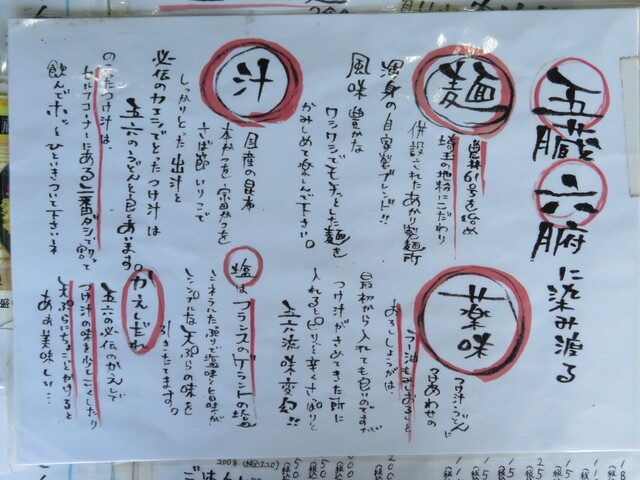 五臓六腑に染み渡る
麺
農林61号を始め
埼玉の地粉にこだわり
併設されたあかり製麺所
渾身の自家製ブレンド!!
風味豊かな
ワシワシでモチッとした麺を
かみしめて楽しんで下さい。
汁
国産の昆布
本かつを、宗田かつを
さば節、いりこで
しっかりとった出汁と
必伝のカエシでとったつけ汁は
五六のうどんと良くあいます。
のこったつけ汁は、
セルフコーナーにある二番ダシで割って
飲んでホッとひといきついて下さいネ
薬味
つけ汁、うどんに
合わせの
ラー油もみじおろしと
おろししょうがは、
最初から入れても良いのですが
つけ汁がさめてきた所に
入れるとピリッと辛くさっぱりと
五六流味変幻!!
塩はフランスのゲラントの塩
ミネラルたっぷりで塩味と旨味が
シンプルな天ぷらの味を
引きたてます。
かえしだれ
五六の必伝のかえしで
つけ汁の味を少しこくしたり
天ぷらにちょっとかけると
ああ美味しい…